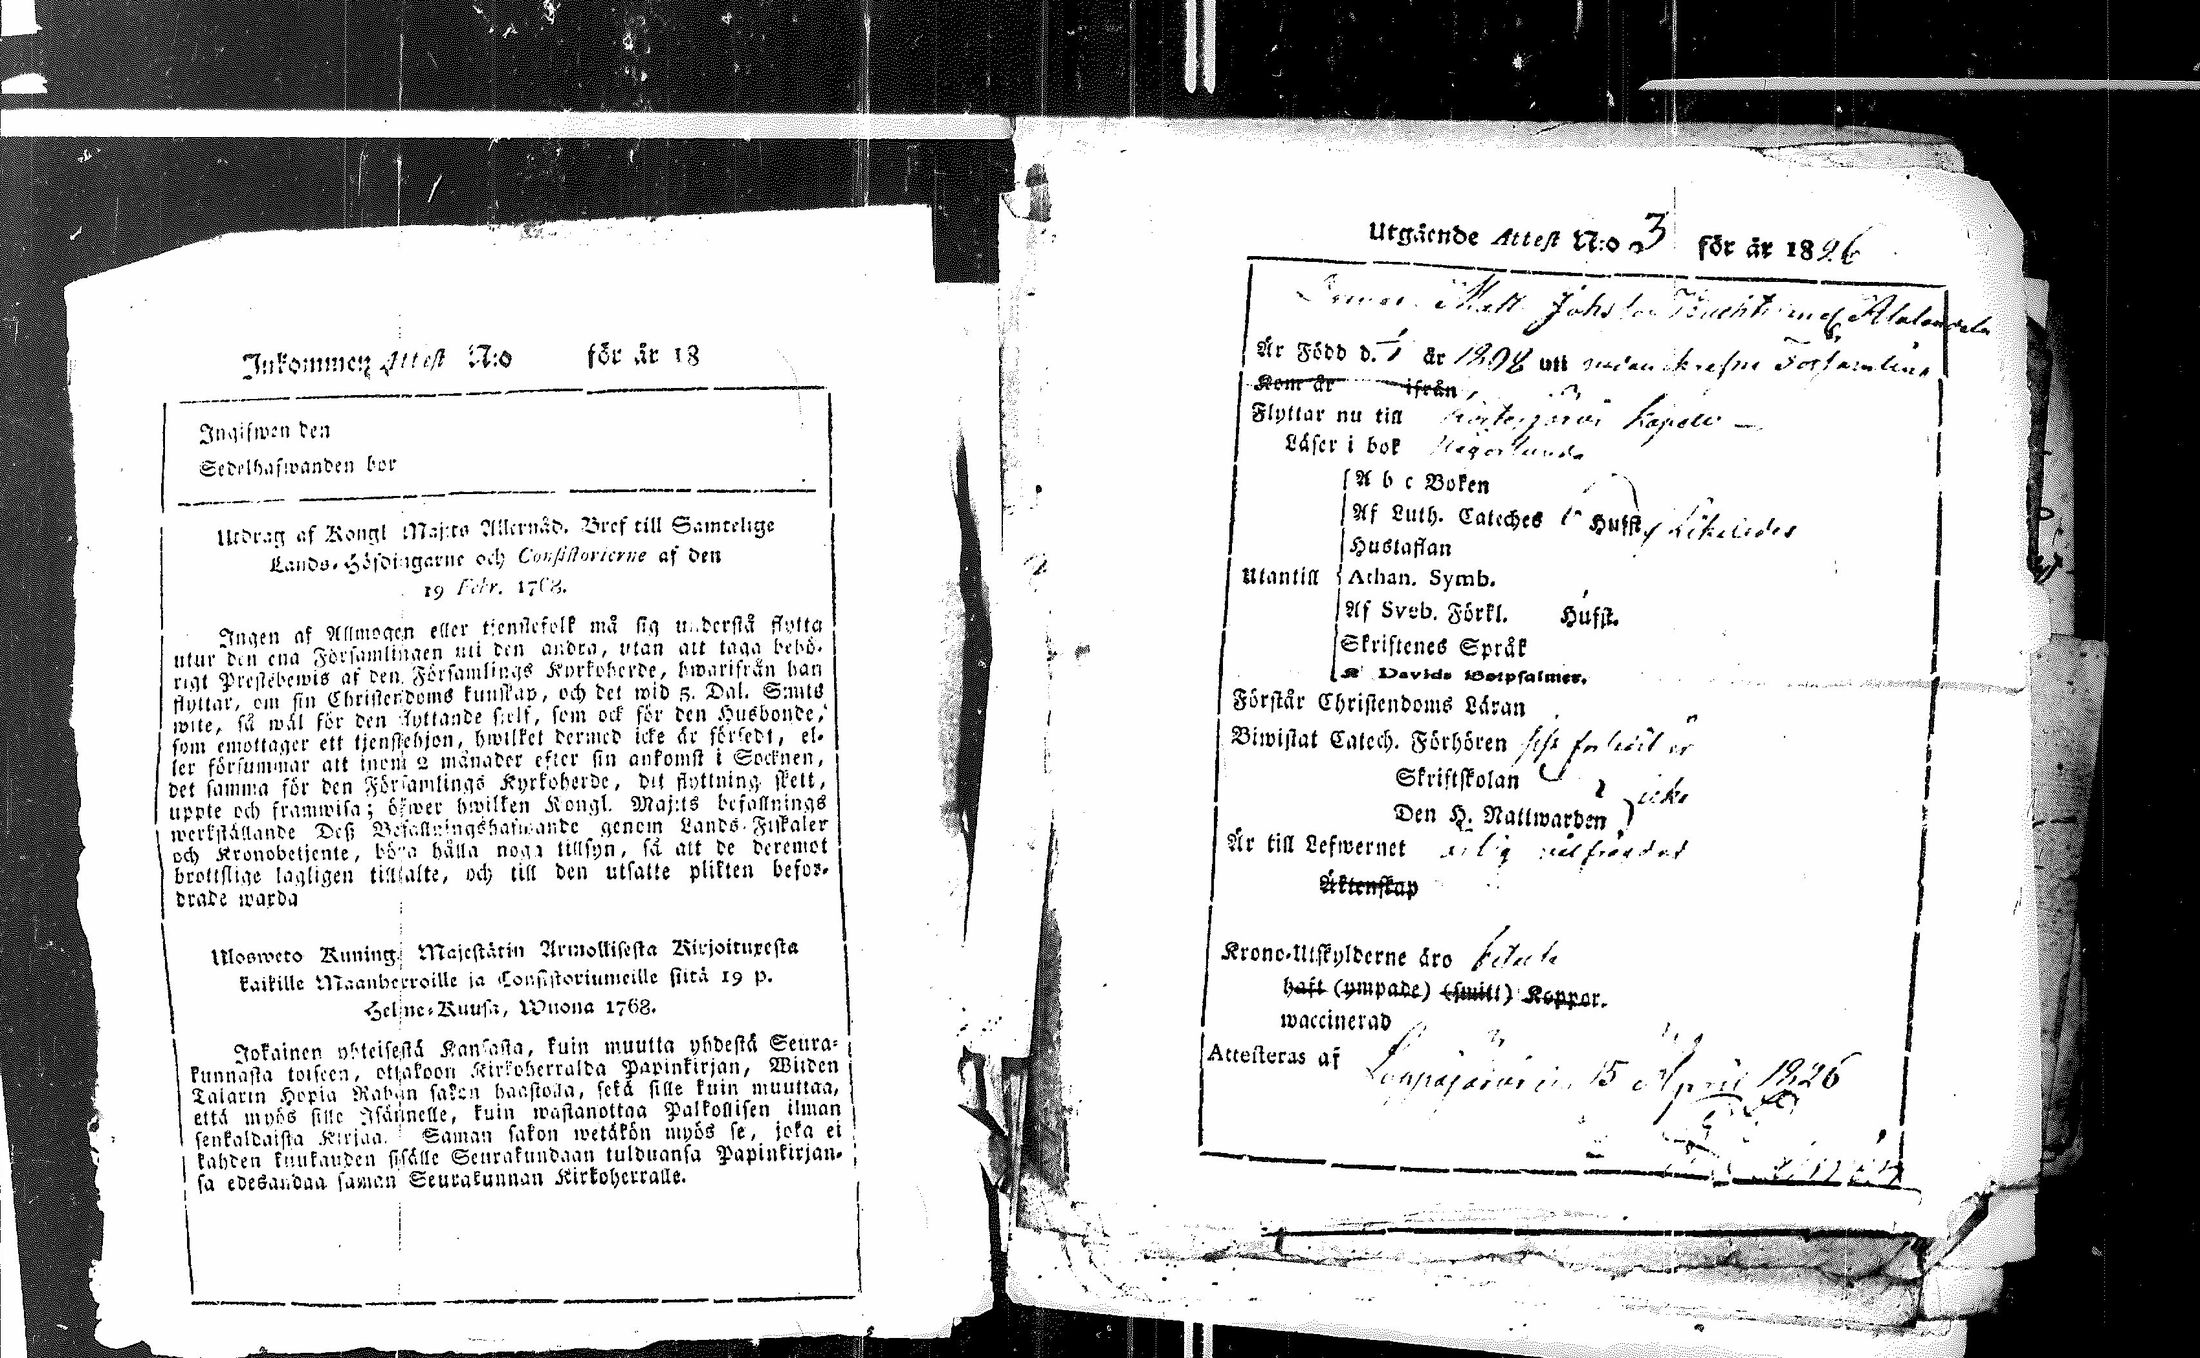 Inkommen Attest N:o för år 18
Ingifwen den
Sedelhafwanden bor
Utdrag af Kongl Maj:ts Allernåd. Bref till Samtelige
Lands-Höfdingarne och Consistorierne af den
19 Febr. 1768.
Ingen af Allmogen eller tjenstefolk må sig understå flytta
utur den ena Församlingen uti den andra, utan att taga behö-
rigt Prestebewis af den Församlings Kyrkoherde, hwarifrån han
flyttar, om sin Christendoms kunskap, och det wid 5. Dal. S:mts
wite, så wäl för den flyttande sielf, som ock för den Husbonde,
som emottager ett tjenstehjon, hwilket dermed icke är försedt, el-
ler försummar att inom 2 månader efter sin ankomst i Socknen,
det samma för den Församlings Kyrkoherde, dit flyttning skett,
uppte och framwisa; öfwer hwilken Kongl. Maj:ts befallnings
werkställande Deß Befallningshafwande genom Lands-Fiskaler
och Kronobetjente, böra hålla noga tillsyn, så att de deremot
brottslige lagligen tilltalte, och till den utsatte plikten befor-
drade warda
Ulosweto Kuning. Majestätin Armollisesta Kirjoituxesta
kaikille Maanherroille ja Consistoriumeille siitä 19 p.
Helme-Kuusa, Wuona 1768.
Jokainen yhteisestä Kansasta, kuin muutta yhdestä Seura-
kunnasta toiseen, ottakoon Kirkoherralda Papinkirjan, Wiiden
Talarin Hopia Rahan sakon haastolla, sekä sille kuin muuttaa,
että myös sille Isännelle, kuin wastanottaa Palkollisen ilman
senkaldaista Kirjaa. Saman sakon wetäkön myös se, joka ei
kahden kuukauden sisälle Seurakundaan tulduansa Papinkirjan-
sa edesandaa saman Seurakunnan Kirkoherralle.
Utgående Attest N:o 3 för år 1826
Matt Johs
Är Född d. 1 år 1808 uti Församling
Kom år ifrån
Flyttar nu till Kapell
Läser i bok
A b c Boken
Af Luth. Cateches Hufst. likaledes
Hustaflan
Utantill Athan. Symb.
Af Sveb. Förkl. Hufst.
Skriftenes Språk
K Davids Botpsalmer.
Förstår Christendoms Läran
Biwistat Catech. Förhören
Skriftskolan
Den H. Nattwarden icke
Är till Lefwernet ärlig wälfrägdad
Äktenskap
Krono-Utskylderne äro betalte
haft (ympade) (smitt) Koppor.
waccinerad
Attesteras af Lappajärvi 15 April 1826